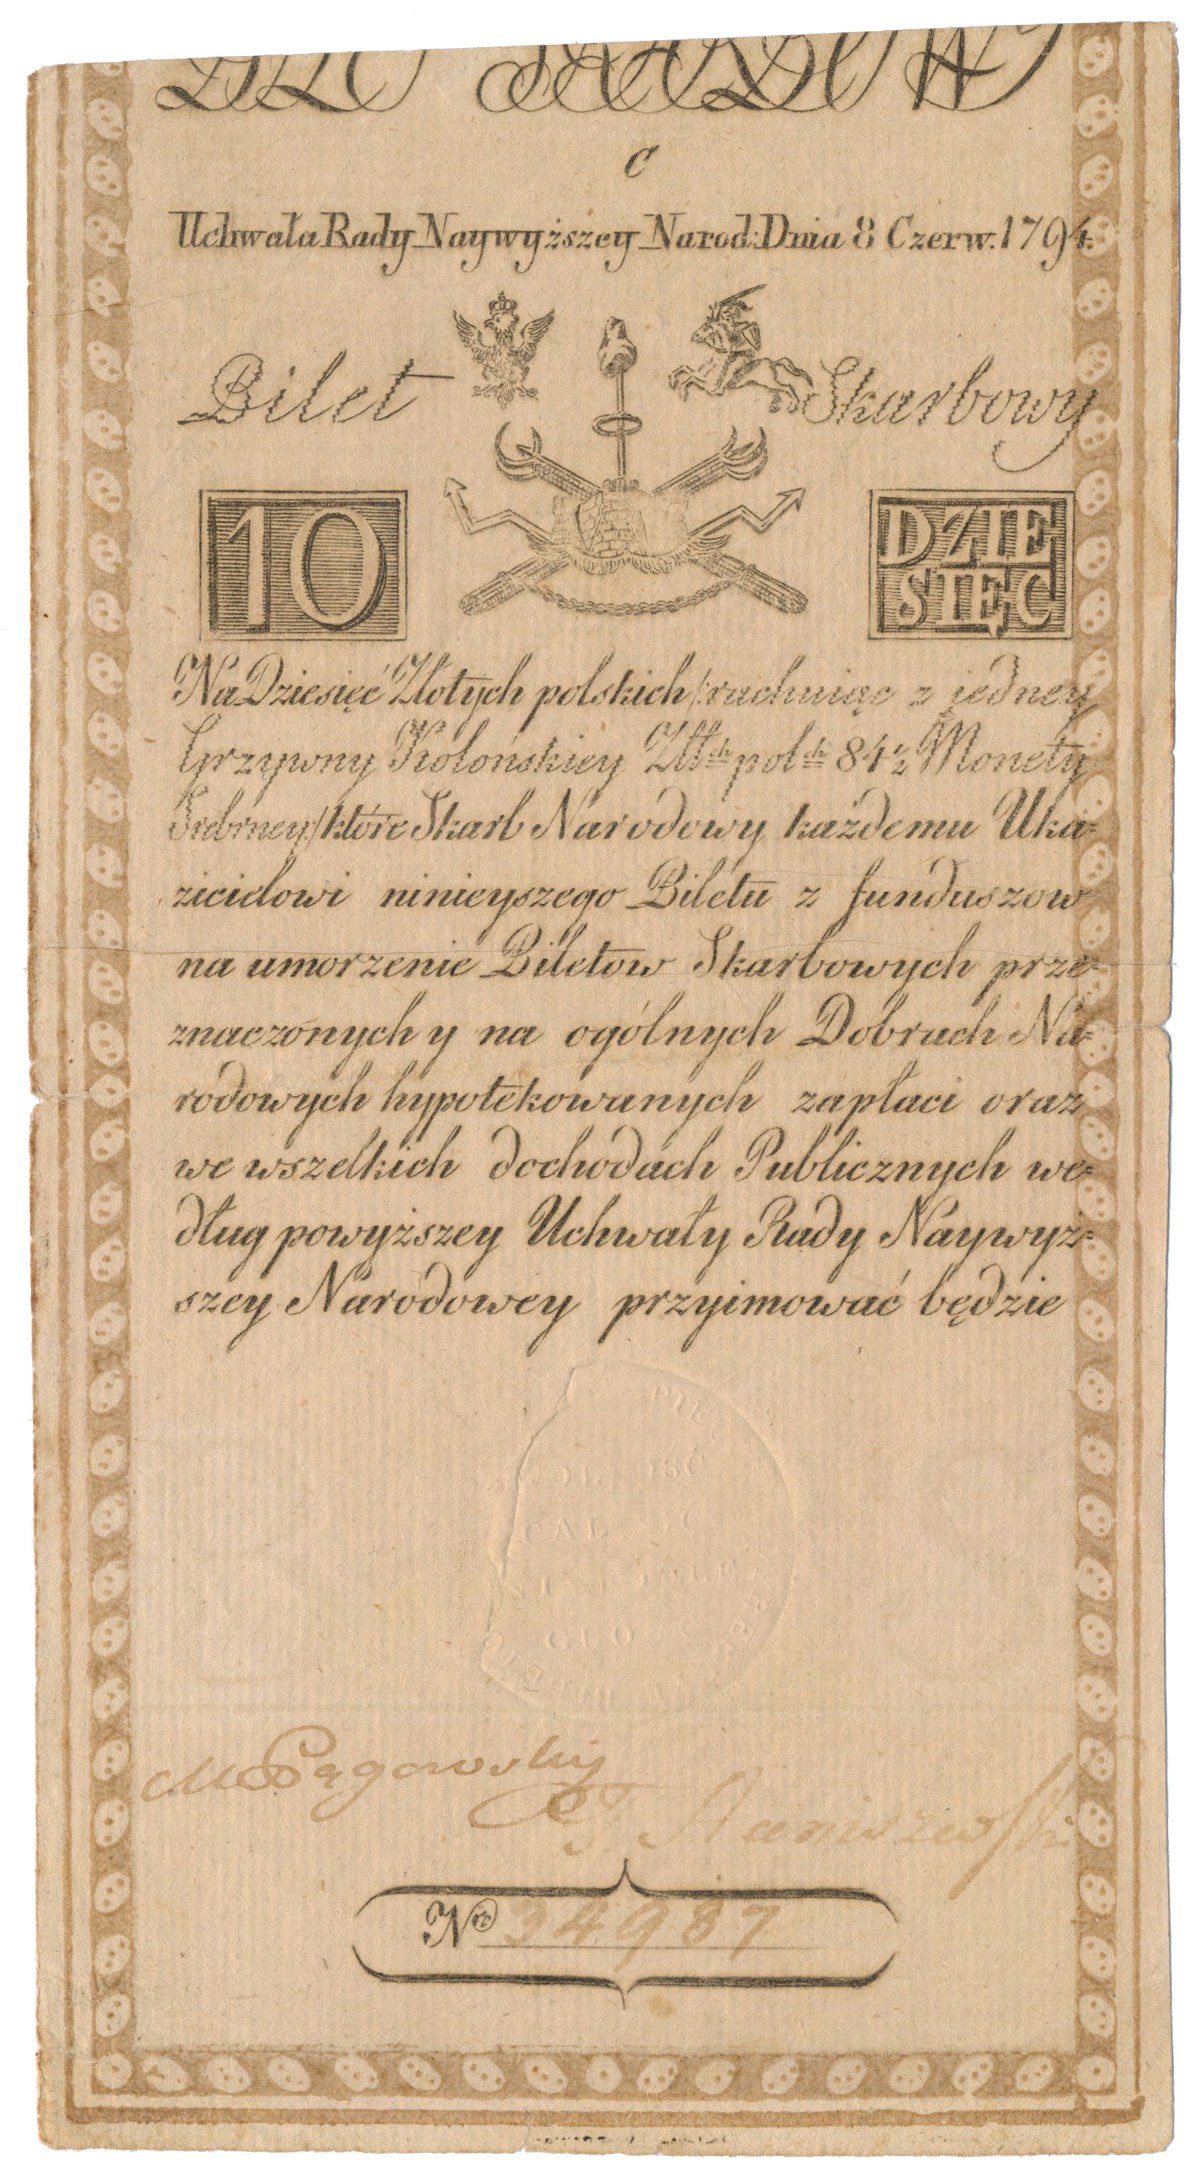 BIL SKARBOWY
c
Uchwała Rady Naywyższey Narod: Dnia 8 Czerw. 1794.
Bilet Skarbowy
10 DZIE
SIĘC
Na Dziesięć Złotych polskich /:rachuiąc z jedney
Grzywny Kolońskiey Złł<sup>ch</sup> pol<sup>ch</sup> 84½ Monety
Srebrney/ które Skarb Narodowy każdemu Uka=
zicielowi ninieyszego Biletu z funduszow
na umorzenie Biletow Skarbowych prze=
znaczonych y na ogólnych Dobrach Na=
rodowych hypotekowanych zapłaci oraz
we wszelkich dochodach Publicznych we=
dług powyższey Uchwały Rady Naywyż=
szey Narodowey przyimować będzie
M Pągowski
F Staniszewski
N<sup>ro</sup> 34987